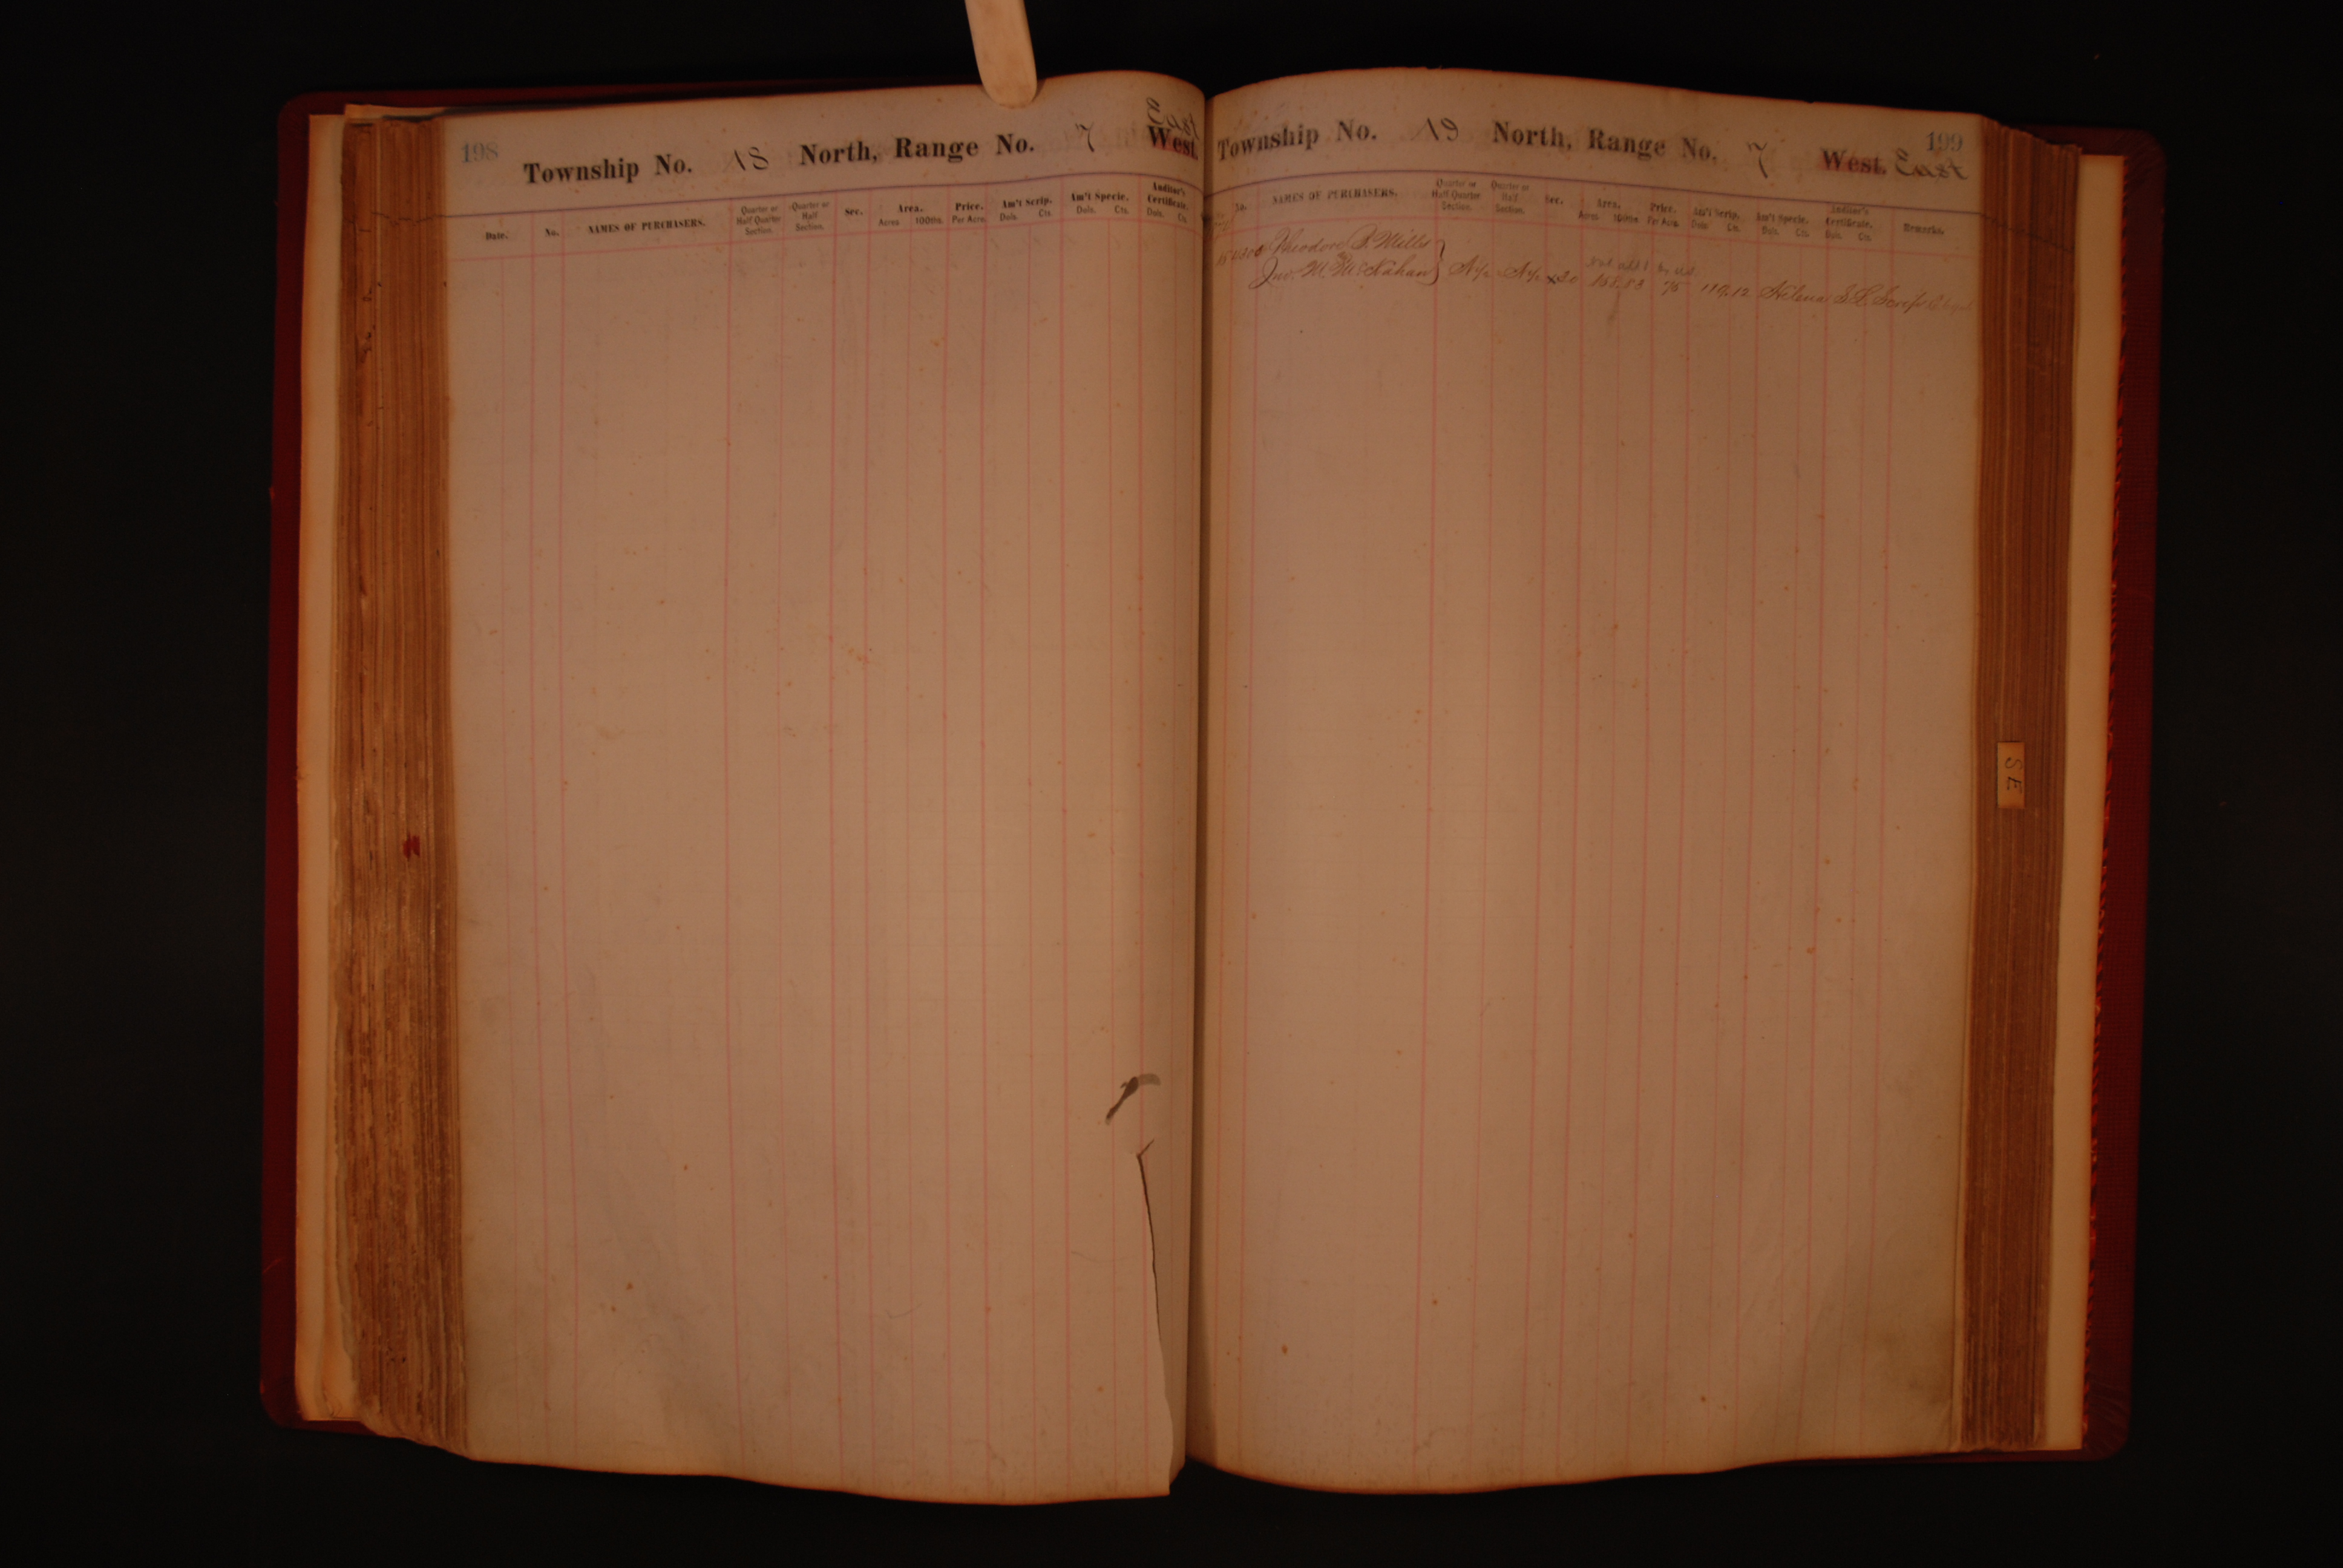 198
Township No. 18 North, Range No. 7 West. East
Date. No. NAMES OF PURCHASERS. Quarter or Half Quarter Section. Quarter or Half Section. Sec. Area. Acres 100ths. Price. Per Acre. Am't Scrip. Dols. Cts. Am't Specie. Dols. Cts. Auditor's Certificate. Dols. Cts.
199
Township No. 19 North, Range No. 7 West. East
No. NAMES OF PURCHASERS. Quarter or Half-Quarter Section. Quarter or Half Section. Sec. Area. Acres 100ths Price. Per Acre. Am't Scrip. Dols Cts. Am't Specie. Dols. Cts. Auditor's Certificate. Dols. Cts. Remarks.
Theodore Mills
Jno. M. McKahan N½ N½ 20 158.83 75 119.12 Helena
SE